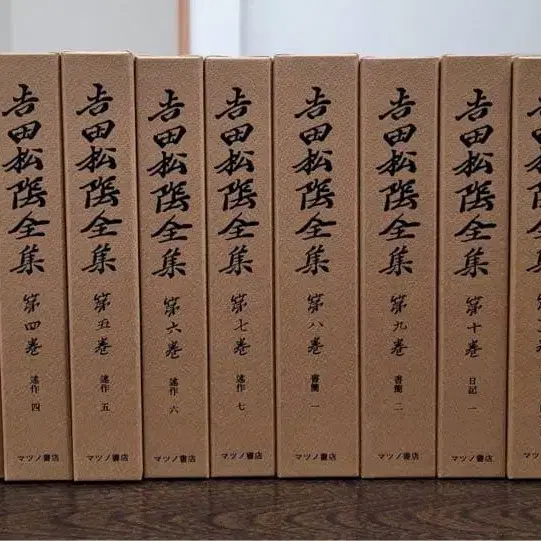 吉田松陰全集
第四巻
述作 四
マツノ書店
吉田松陰全集
第五巻
述作 五
マツノ書店
吉田松陰全集
第六巻
述作 六
マツノ書店
吉田松陰全集
第七巻
述作 七
マツノ書店
吉田松陰全集
第八巻
書簡 一
マツノ書店
吉田松陰全集
第九巻
書簡 二
マツノ書店
吉田松陰全集
第十巻
日記 一
マツノ書店